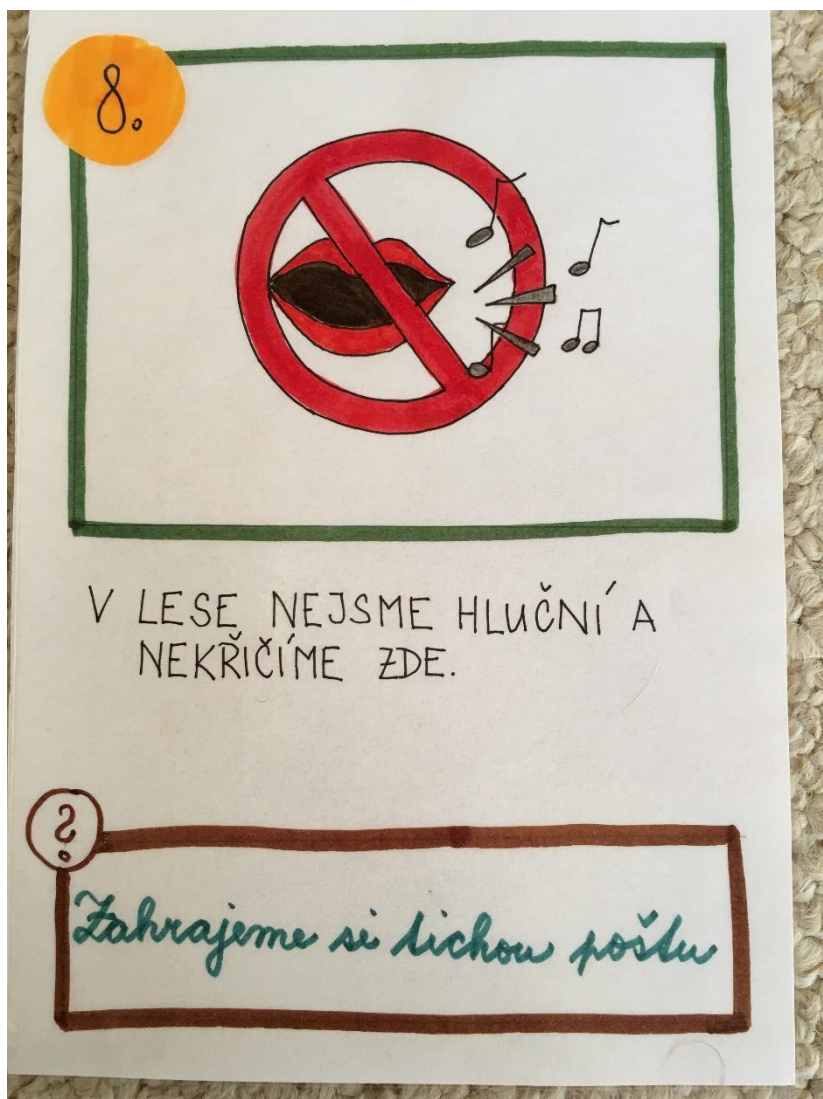 8.
V LESE NEJSME HLUČNÍ A
NEKŘIČÍME ZDE.
?
Zahrajeme si tichou poštu